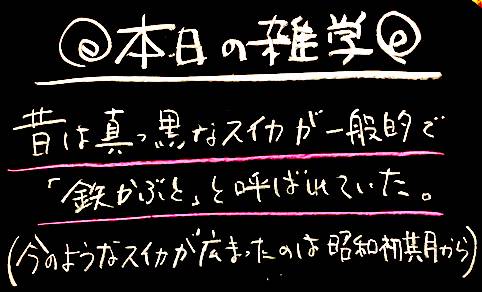 @本日の雑学@
昔は真っ黒なスイカが一般的で
「鉄かぶと」と呼ばれていた。
(今のようなスイカが広まったのは昭和初期から)